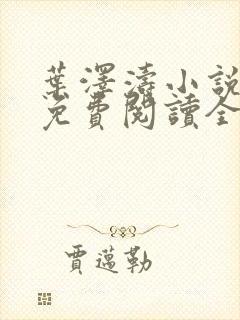 葉澤濤小說
免費閱讀全
賈邁勒